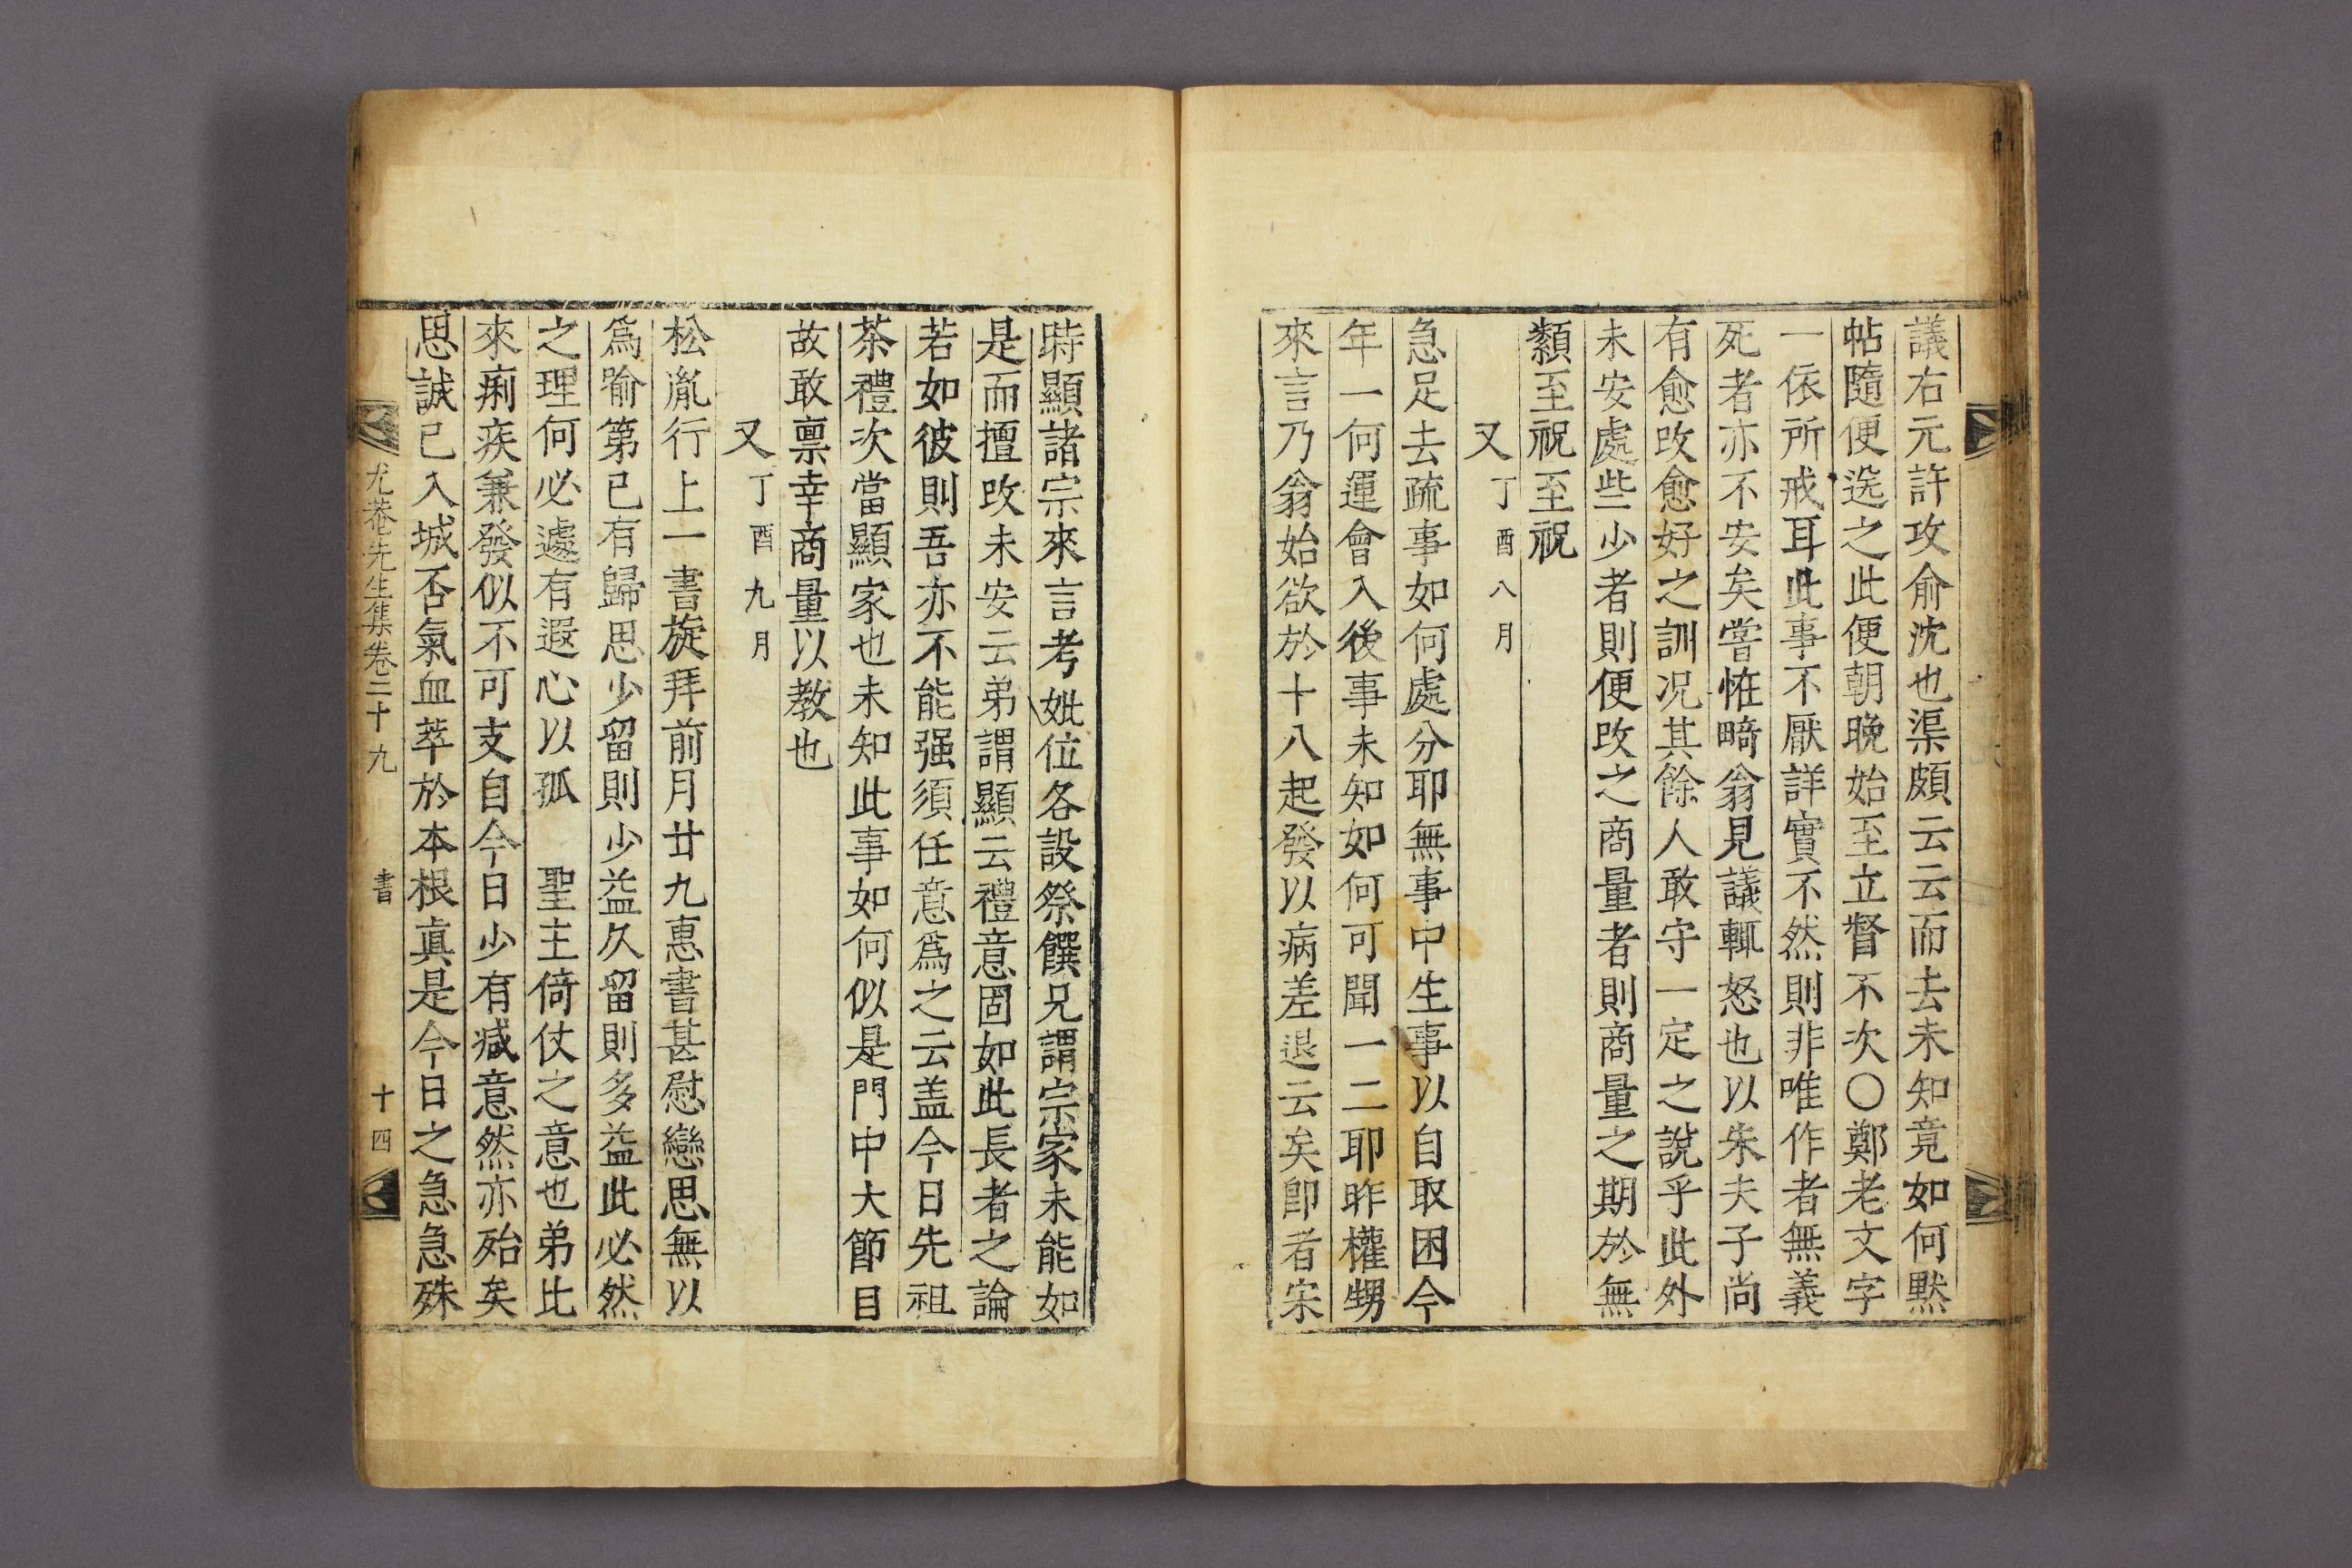 議右元許攻俞沈也渠頗云云而去未知竟如何黙
帖隨便送之此便朝晩始至立督不次○鄭老文字
一依所戒耳此事不厭詳實不然則非唯作者無義
死者亦不安矣嘗恠畸翁見議輒怒也以朱夫子尚
有愈改愈好之訓况其餘人敢守一定之說乎此外
未安處些少者則便改之商量者則商量之期於無
纇至祝至祝
又丁酉八月
急足去疏事如何處分耶無事中生事以自取困今
年一何運會入後事未知如何可聞一二耶昨權甥
來言乃翁始欲於十八起發以病差退云矣卽者宋
時顯諸宗來言考妣位各設祭饌兄謂宗家未能如
是而擅改未安云弟謂顯云禮意固如此長者之論
若如彼則吾亦不能强須任意爲之云盖今日先祖
茶禮次當顯家也未知此事如何似是門中大節目
故敢禀幸商量以教也
又丁酉九月
松胤行上一書旋拜前月廿九惠書甚慰戀思無以
爲喻第已有歸思少留則少益久留則多益此必然
之理何必遽有遐心以孤　聖主倚仗之意也弟比
來痢疾兼發似不可支自今日少有减意然亦殆矣
思誠已入城否氣血萃於本根眞是今日之急急殊
尤菴先生集卷二十九　書　十四